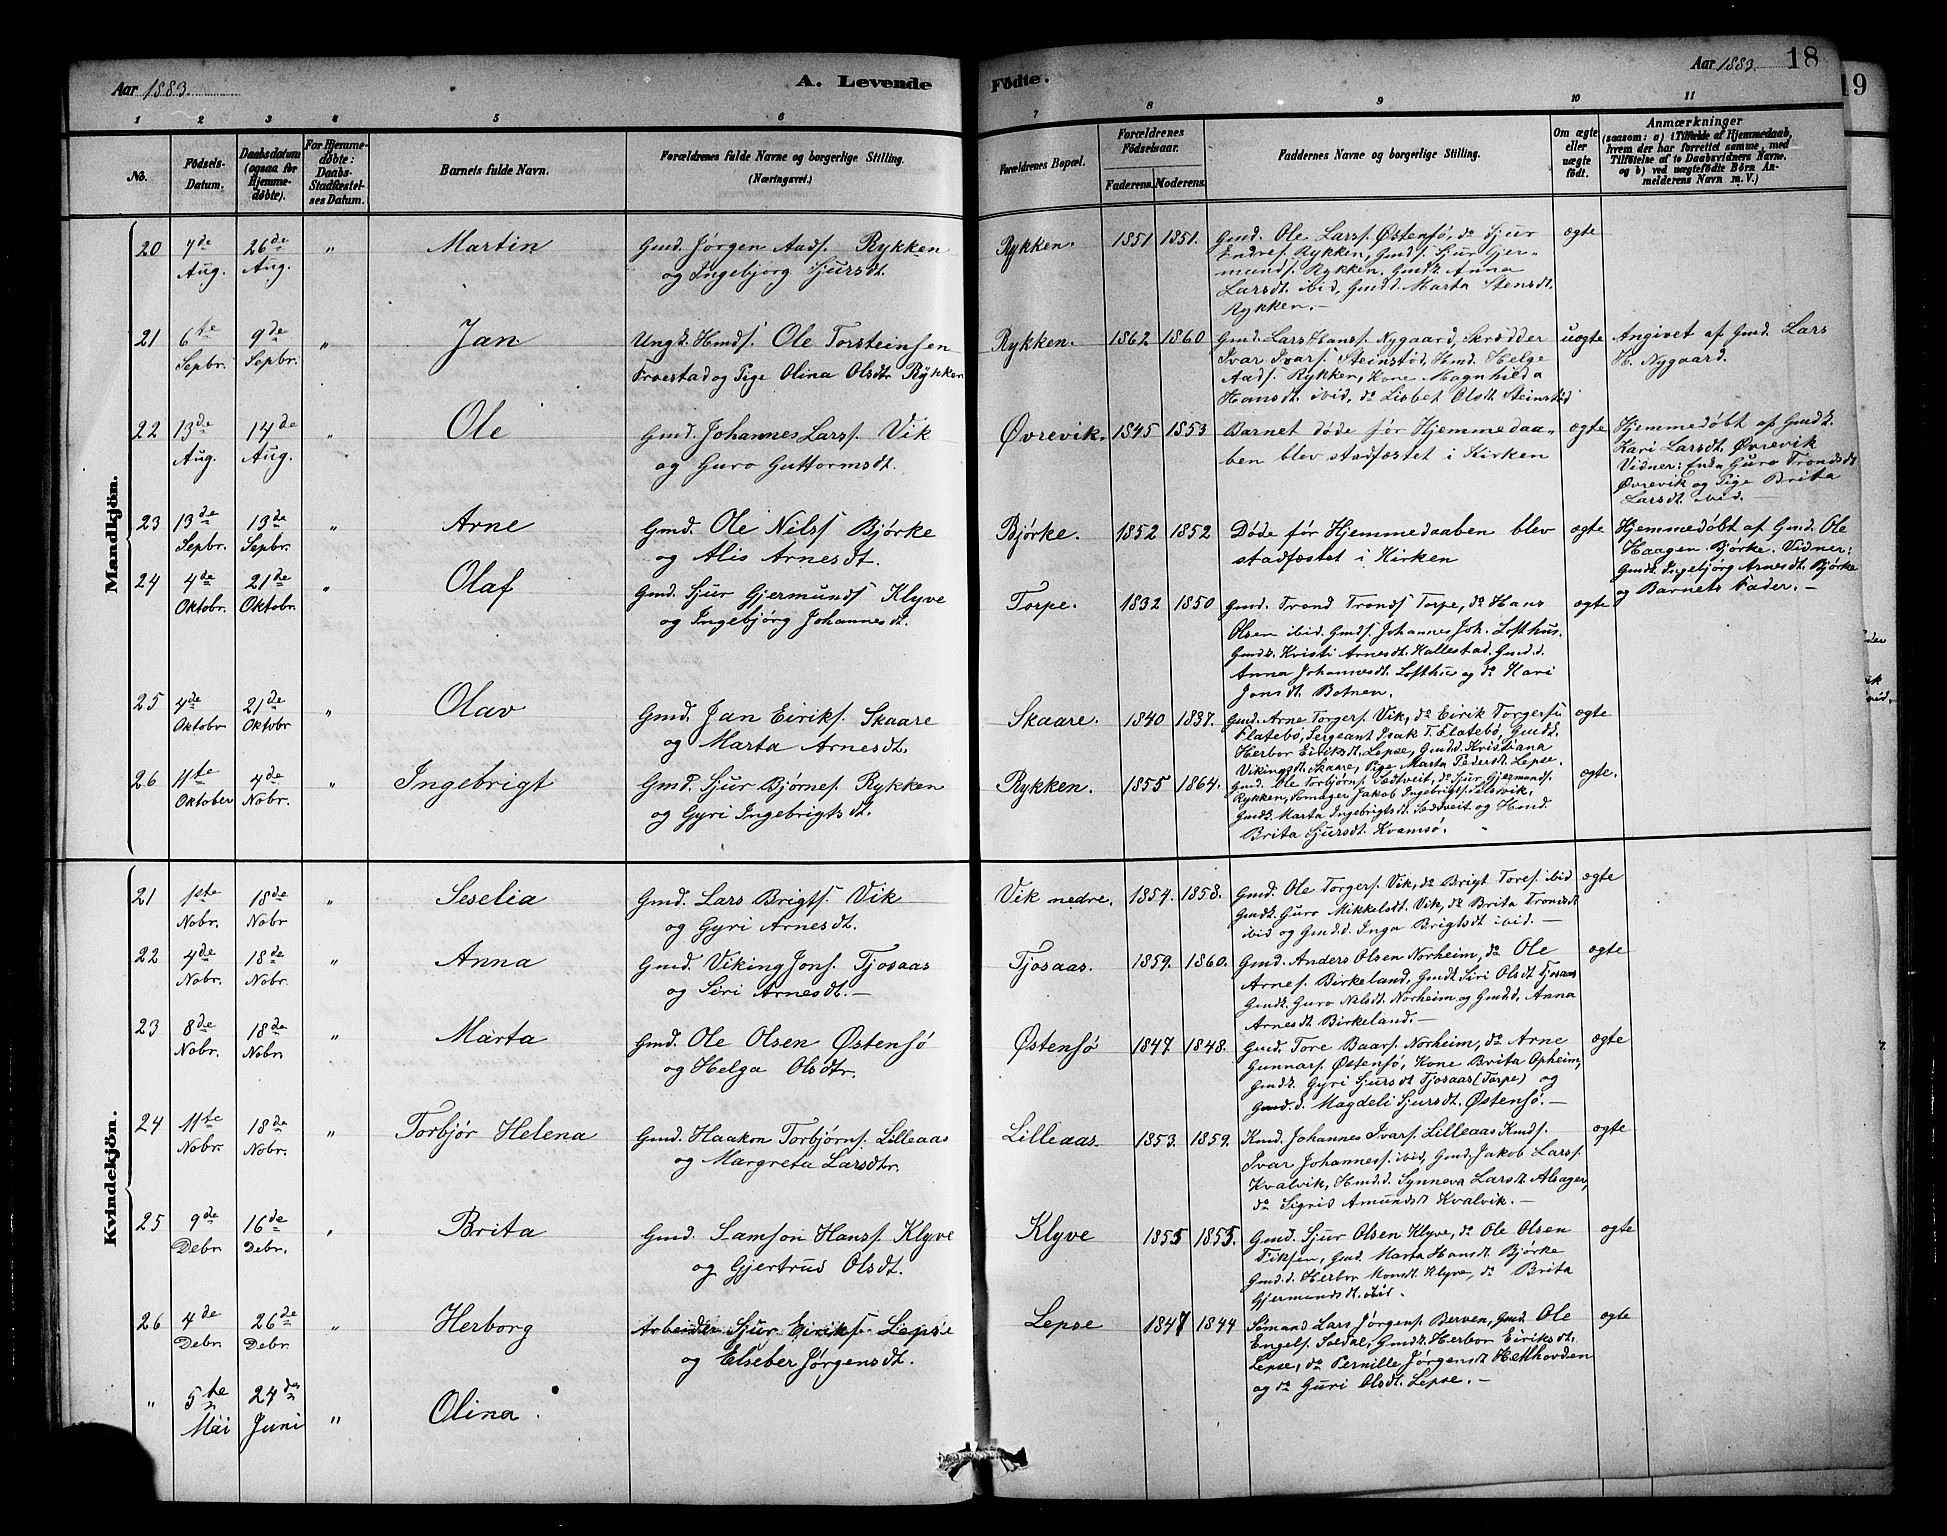 Aar 1883.
A. Levende
Fødte.
Aar 1883.
18
19
1 2 3 4 5 6 7 8 9 10 11
No.
Fødsels-
Datum.
Daabsdatum
(ogsaa for
Hjemme-
døbte).
For Hjemme-
døbte:
Daabs-
Stadfæstel-
ses Datum.
Barnets fulde Navn.
Forældrenes fulde Navne og borgerlige Stilling.
(Næringsvei.)
Forældrenes Bopæl.
Forældrenes
Fødselsaar.
Faderens.
Moderens.
Faddernes Navne og borgerlige Stilling.
Om ægte
eller
uægte
født.
Anmærkninger
(saasom: a) i Tilfælde af Hjemmedaab,
hvem der har forrettet samme, med
Tilføielse af to Daabsvidners Navne.
og b) ved uægtefødte Børn An-
melderens Navn m. V.)
Mandkjön.
20 7de Aug. 26de Aug. " Martin
Gmd. Jørgen Aads. Rykken
og Ingebjørg Sjursdt.
Rykken. 1851 1851.
Gmd. Ole Larss. Østensø, do Sjur
Endres. Rykken, Gmds. Sjur Gjer-
munds. Rykken. Gmdk. Anna
Larsdt. ibid, Gmdd. Marta Stensdt.
Rykken.-
ægte
21 6te Sepbr. 9de Sepbr. " Jan
Ungk. Hmds. Ole Torsteinsen
Froestad og Pige Olina Olsdtr Rykken
Rykken. 1862 1860
Gmd. Lars Hanss. Nygaard, Skrædder
Ivar Ivars. Steinstød, Hmd. Helge
Aads. Rykken, Kone Magnhilda
Hansdt. ibid, do Lisbet Olsdt. Steinstød
uægte
Angivet af Gmd. Lars
H. Nygaard.
22 13de Aug. 14de Aug. " Ole
Gmd. Johannes Larss. Vik
og Guro Guttormsdt.
Øvrevik. 1845 1853
Barnet døde før Hjemmedaa-
ben blev stadfæstet i Kirken
ægte
Hjemmedøbt af Gmdk.
Kari Larsdt. Øvrevik
Vidner: Enke Guro Trondsdt
Øvrevik og Pige Brita
Larsdt ibid.-
23 13de Sepbr. 13de Sepbr. " Arne
Gmd. Ole Nilss. Bjørke
og Alis Arnesdt.
Bjørke. 1852 1852
Døde før Hjemmedaaben blev
stadfæstet i Kirken
ægte
Hjemmedøbt af Gmd. Ole
Haagen Bjørke. Vidner:
Gmdk. Ingebjørg Arnesdt. Bjørke
og Barnets Fader.-
24 4de Oktobr. 21de Oktobr. " Olaf
Gmd. Sjur Gjermunds. Klyve
og Ingebjørg Johannesdt.
Torpe. 1832 1850
Gmd. Trond Tronds. Torpe, do Hans
Olsen ibid. Gmds. Johannes Joh. Lofthus.
Gmdk. Kristi Arnesdt. Hallestad. Gmd.d.
Anna Johannesdt. Lofthus og do Kari
Jonsdt. Botnen.
ægte
25 4de Oktobr 21de Oktobr " Olav
Gmd. Jan Eiriks. Skaare
og Marta Arnesdt.
Skaare. 1840 1837.
Gmd. Arne Torgers. Vik, do Eirik Torgers.
Flatebø, Sergeant Isak T. Flatebø, Gmdk.
Herbor Eiriksdt. Lepse, Gmd.d. Kristiana
Vikingsdt. Skaare, Pige Marta Pedersdt. Lepse.
ægte
26 11te Oktober 4de Nobr. " Ingebrigt
Gmd. Sjur Bjørnes. Rykken
og Gyri Ingebrigtsdt.
Rykken. 1855 1864.
Gmd. Ole Torbjørns. Sædtveit, do Sjur Gjermunds.
Rykken, Jakob Ingebrigts.
Gmdk. Marta Ingebrigtsdt. Sædtveit og Hmd.
Brita Sjursdt. Kvamsø.
ægte.
Kvindekjön.
21 1ste Nobr. 18de Nobr " Seselia
Gmd. Lars Brigts. Vik
og Gyri Arnesdt.
Vik nedre. 1854. 1858.
Gmd. Ole Torgers. Vik, do Brigt Tores. ibid
Gmdk. Guro Mikkelsdt. Vik, do Brita Trondsdt
ibid og Gmd.d. Inga Brigtsdt ibid.-
ægte
22 4de Nobr. 18de Nobr. " Anna
Gmd. Viking Jons. Tjosaas
og Siri Arnesdt.-
Tjosaas. 1859. 1860.
Gmd. Anders Olsen Norheim, do Ole
Arnes. Birkeland. Gmdk. Siri Olsdt Tjosaas
Gmdk. Guro Nilsdt. Norheim og Gmd.d. Anna
Arnesdt Birkeland.-
ægte
23 8de Nobr. 18de Nobr. " Marta
Gmd. Ole Olsen Østensø
og Helga Olsdtr.
Østensø 1847 1848.
Gmd. Tore Baars. Norheim, do Arne
Gunnars. Østensø, Kone Brita Opheim,
Gmdk. Gyri Sjursdt Tjosaas (Torpe) og
Gmd.d. Magdeli Sjursdt. Østensø.-
ægte
24 11te Nobr. 18de Nobr. " Torbjør Helena
Gmd. Haakon Torbjørns. Lilleaas
og Margreta Larsdtr.
Lilleaas. 1853. 1859.
Kmd. Johannes Ivars. Lilleaas Kmds.
Ivar Johanness. ibid, Gmd. Jakob Larss.
Kvalvik, Hmd.d. Synneva Larsdt Alsager,
do Sigrid Amundsdt Kvalvik.-
ægte
25 9de Debr. 16de Debr. " Brita
Gmd. Samson Hanss. Klyve
og Gjertrud Olsdt.
Klyve 1855 1855.
Gmd. Sjur Olsen Klyve, do Ole Olsen
Tiksen, Gmd. Marta Hansdt Bjørke
Gmd.d. Herbor Monsdt. Klyve, do Brita
Gjermundsdt. ibid.
ægte
26 4de Debr. 26de Debr. " Herborg
Arbeider Sjur Eiriks. Lepse
og Elseber Jørgensdt.
Lepse 1847 1844
Sømand Lars Jørgens. Berven, Gmd. Ole
Engels. Soldal, Gmdk. Herbor Eiriksdt.
Lepse, do Pernille Jørgensdt
og do Guri Olsdt. Lepse.-
ægte
" 5te Mai 24de Juni " Olina.